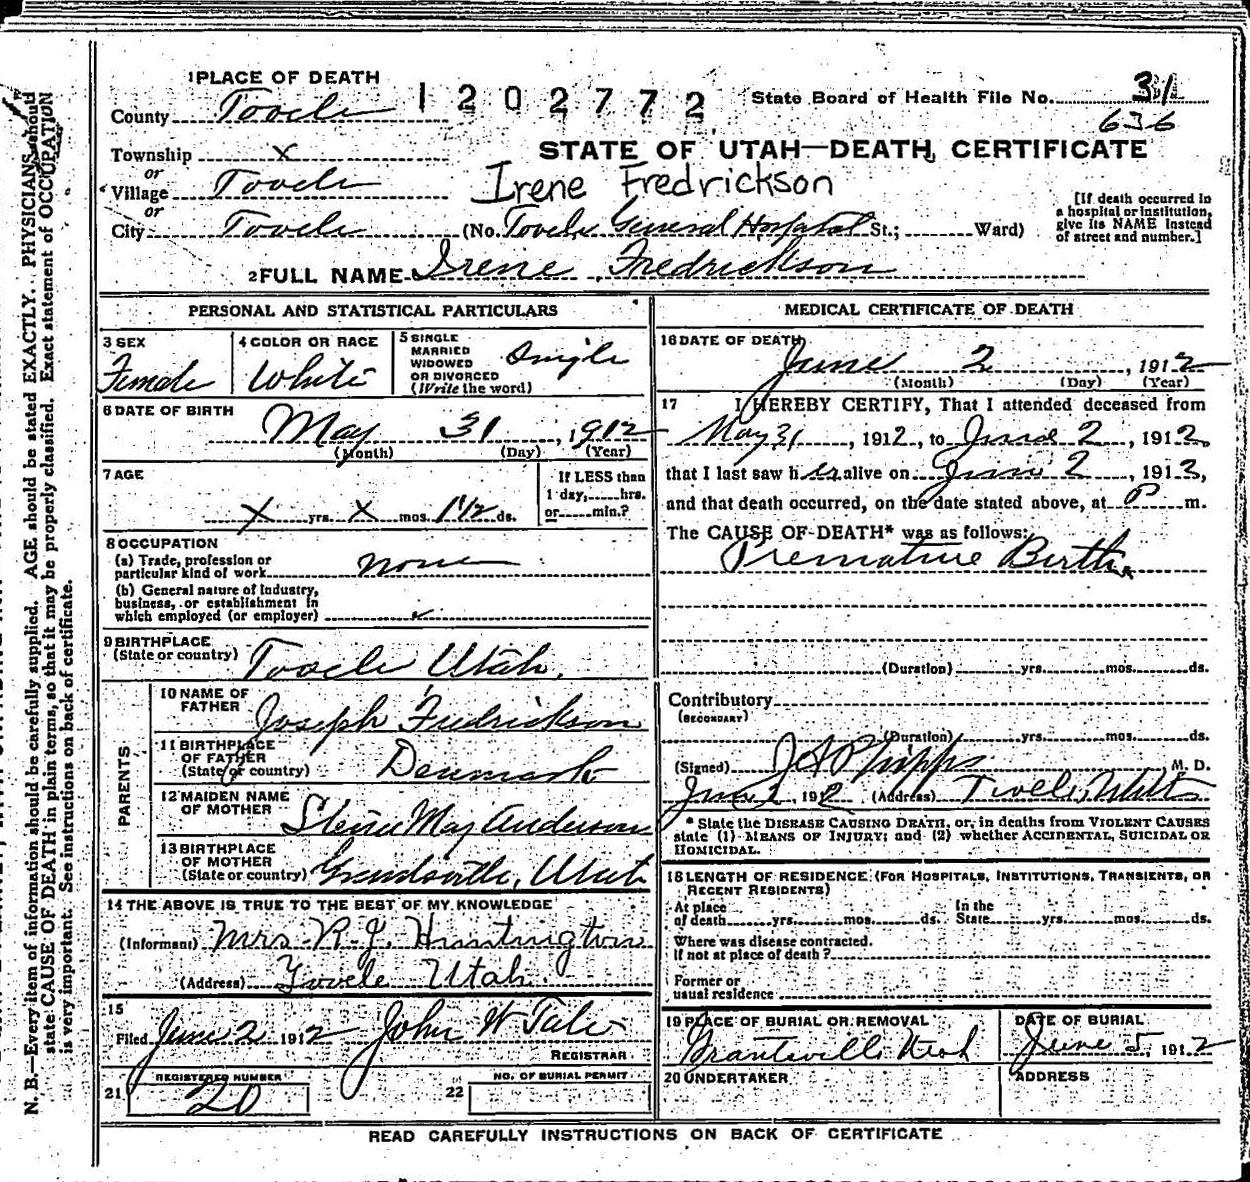 1 PLACE OF DEATH
County Tooele
1202772
State Board of Health File No. 31
636
Township X
or
Village Tooele
or
City Tooele
STATE OF UTAH—DEATH CERTIFICATE
Irene Fredrickson
(No. Tooele General Hospital St.; Ward)
[If death occurred in
a hospital or institution,
give its NAME instead
of street and number.]
2 FULL NAME Irene Fredrickson
PERSONAL AND STATISTICAL PARTICULARS
3 SEX
Female
4 COLOR OR RACE
White
5 SINGLE
MARRIED
WIDOWED
OR DIVORCED
(Write the word)
Single
6 DATE OF BIRTH
May 31, 1912
(Month) (Day) (Year)
7 AGE
X yrs. X mos. 1 1/2 ds.
If LESS than
1 day, hrs.
or min.?
8 OCCUPATION
(a) Trade, profession or
particular kind of work none
(b) General nature of Industry,
business, or establishment in
which employed (or employer)
9 BIRTHPLACE
(State or country) Tooele Utah.
PARENTS
10 NAME OF
FATHER Joseph Fredrickson
11 BIRTHPLACE
OF FATHER
(State or country) Denmark
12 MAIDEN NAME
OF MOTHER May Anderson
13 BIRTHPLACE
OF MOTHER
(State or country) Grantsville, Utah
14 THE ABOVE IS TRUE TO THE BEST OF MY KNOWLEDGE
(Informant) Mrs R. J. Huntington
(Address) Tooele Utah
15
Filed June 2 1912 John W Tate
REGISTRAR
21 REGISTERED NUMBER
20
22 NO. OF BURIAL PERMIT
MEDICAL CERTIFICATE OF DEATH
16 DATE OF DEATH
June 2, 1912
(Month) (Day) (Year)
17 I HEREBY CERTIFY, That I attended deceased from
May 31, 1912, to June 2, 1912,
that I last saw her alive on June 2, 1912,
and that death occurred, on the date stated above, at P m.
The CAUSE OF DEATH* was as follows:
Premature Birth.
(Duration) yrs. mos. ds.
Contributory
(SECONDARY)
(Duration) yrs. mos. ds.
(Signed) J A Phipps M. D.
June 2, 1912 (Address) Tooele, Utah
* State the DISEASE CAUSING DEATH, or, in deaths from VIOLENT CAUSES
state (1) MEANS OF INJURY; and (2) whether ACCIDENTAL, SUICIDAL OR
HOMICIDAL.
18 LENGTH OF RESIDENCE (FOR HOSPITALS, INSTITUTIONS, TRANSIENTS, OR
RECENT RESIDENTS)
At place
of death yrs. mos. ds.
In the
State yrs. mos. ds.
Where was disease contracted.
If not at place of death?
Former or
usual residence
19 PLACE OF BURIAL OR REMOVAL
Grantsville Utah
DATE OF BURIAL
June 5, 1912
20 UNDERTAKER
ADDRESS
READ CAREFULLY INSTRUCTIONS ON BACK OF CERTIFICATE
N. B.—Every item of information should be carefully supplied. AGE should be stated EXACTLY. PHYSICIANS should
state CAUSE OF DEATH in plain terms, so that it may be properly classified. Exact statement of OCCUPATION
is very important. See instructions on back of certificate.